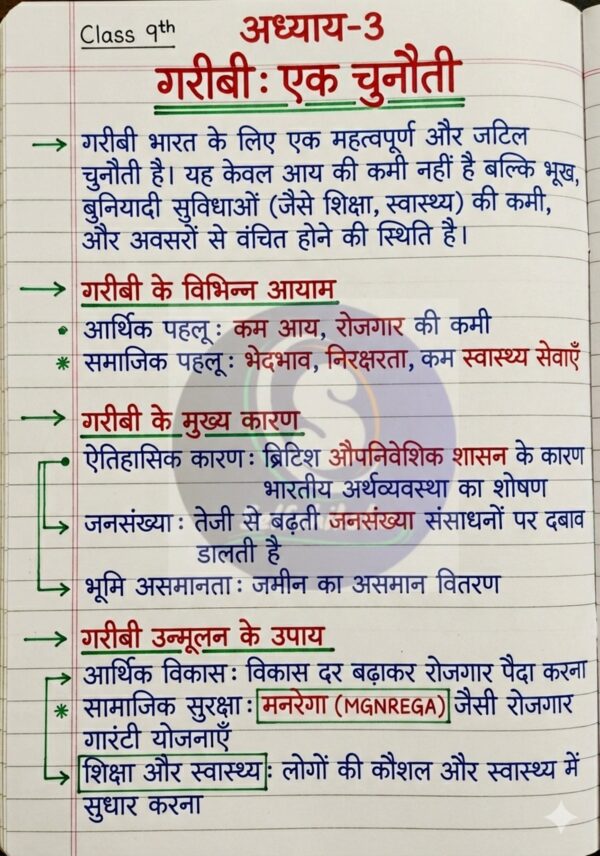 Class 9th
अध्याय-3
गरीबी: एक चुनौती
गरीबी भारत के लिए एक महत्वपूर्ण और जटिल
चुनौती है। यह केवल आय की कमी नहीं है बल्कि भूख,
बुनियादी सुविधाओं (जैसे शिक्षा, स्वास्थ्य) की कमी,
और अवसरों से वंचित होने की स्थिति है।
गरीबी के विभिन्न आयाम
आर्थिक पहलू: कम आय, रोजगार की कमी
समाजिक पहलू: भेदभाव, निरक्षरता, कम स्वास्थ्य सेवाएँ
गरीबी के मुख्य कारण
ऐतिहासिक कारण: ब्रिटिश औपनिवेशिक शासन के कारण
भारतीय अर्थव्यवस्था का शोषण
जनसंख्या: तेजी से बढ़ती जनसंख्या संसाधनों पर दबाव
डालती है
भूमि असमानता: जमीन का असमान वितरण
गरीबी उन्मूलन के उपाय
आर्थिक विकास: विकास दर बढ़ाकर रोजगार पैदा करना
सामाजिक सुरक्षा: मनरेगा (MGNREGA) जैसी रोजगार
गारंटी योजनाएँ
शिक्षा और स्वास्थ्य: लोगों की कौशल और स्वास्थ्य में
सुधार करना